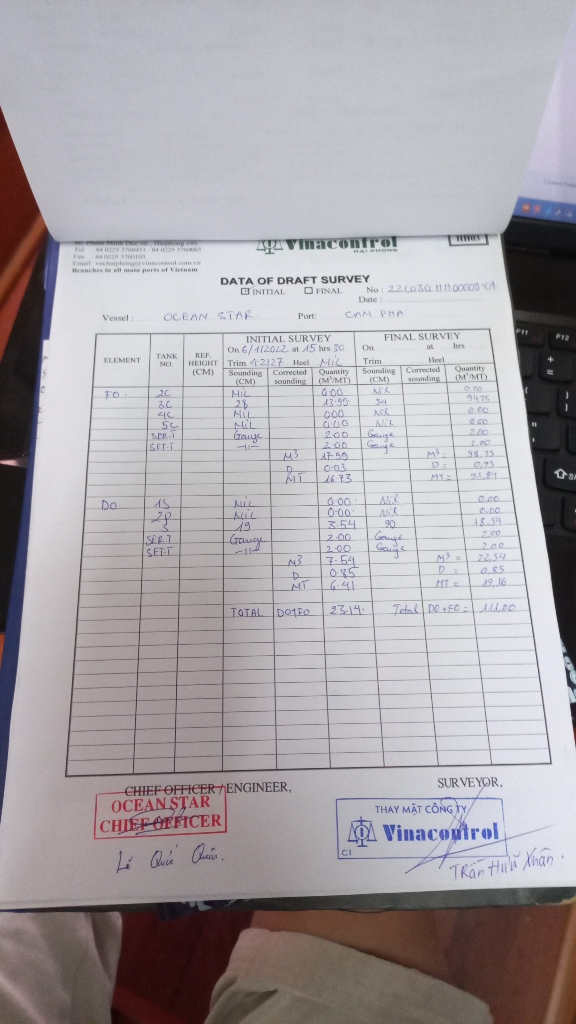 Email: vinchaiphong@vinacontrol.com.vn
Branches in all main ports of Vietnam
Vinacontrol
HAI PHONG
HH03
DATA OF DRAFT SURVEY
☒ INITIAL ☐ FINAL No :
Date :
Vessel : OCEAN STAR. Port: CAM PHA
ELEMENT TANK NO. REF. HEIGHT (CM) INITIAL SURVEY FINAL SURVEY
On 6/1/2022 at 15 hrs 30 On at hrs
Trim 4.2127 Heel Nil Trim Heel
Sounding (CM) Corrected sounding Quantity (M³/MT) Sounding (CM) Corrected sounding Quantity (M³/MT)
FO 2C Nil 0.00 Nil 0.00
3C 28 13.99 94.75
4C Nil 0.00 Nil 0.00
5C Nil 0.00 Nil 0.00
SER.T Gauge 2.00 Gauge 2.00
SET.T -11- 2.00 Gauge 2.00
M³ 17.99 M³ = 98.75
D 0.93 D = 0.93
MT 16.73 MT = 91.84
DO 1S Nil 0.00 Nil 0.00
2P Nil 0.00 Nil 0.00
S 19 3.54 90 18.54
SER.T Gauge 2.00 Gauge 2.00
SET.T -11- 2.00 Gauge 2.00
M³ 7.54 M³ = 22.54
D 0.85 D = 0.85
MT 6.41 MT = 19.16
TOTAL DO+FO 23.14 Total DO+FO = 111.00
CHIEF OFFICER / ENGINEER, SURVEYOR,
OCEAN STAR
CHIEF OFFICER
THAY MẶT CÔNG TY
Vinacontrol
C1
Lê Quý
Trần Hữu Xuân